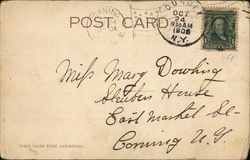 POST CARD
OCT
24
830 AM
1906
N.Y.
Miss Mary Dowling
Steuben House
East Market St
Corning N.Y.
THIS SIDE FOR ADDRESS.